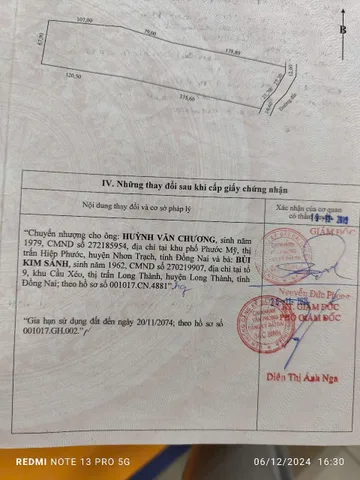 107,00
50,00
139,80
67,50
120,50
176,60
12,80
Đường đất
B
IV. Những thay đổi sau khi cấp giấy chứng nhận
Nội dung thay đổi và cơ sở pháp lý
Xác nhận của cơ quan
có thẩm quyền
"Chuyển nhượng cho ông: HUỲNH VĂN CHƯƠNG, sinh năm
1979, CMND số 272185954, địa chỉ tại khu phố Phước Mỹ, thị
trấn Hiệp Phước, huyện Nhơn Trạch, tỉnh Đồng Nai và bà: BÙI
KIM SÁNH, sinh năm 1962, CMND số 270219907, địa chỉ tại tổ
9, khu Cầu Xéo, thị trấn Long Thành, huyện Long Thành, tỉnh
Đồng Nai; theo hồ sơ số 001017.CN.4881"
GIÁM ĐỐC
Nguyễn Đức Phong
"Gia hạn sử dụng đất đến ngày 20/11/2074; theo hồ sơ số
001017.GH.002."
KT. GIÁM ĐỐC
PHÓ GIÁM ĐỐC
Diên Thị Ánh Nga
REDMI NOTE 13 PRO 5G
06/12/2024 16:30